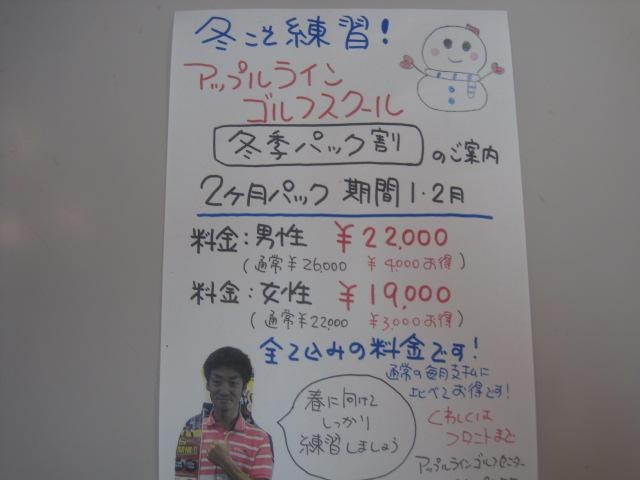 冬こそ練習!
アップルライン
ゴルフスクール
冬季パック割 のご案内
2ヶ月パック 期間1・2月
料金:男性 ¥22,000
(通常¥26,000 ¥4,000お得)
料金:女性 ¥19,000
(通常¥22,000 ¥3,000お得)
全て込みの料金です!
通常の毎月支払に
比べてお得です!
春に向けて
しっかり
練習しましょう
くわしくは
フロントまで
アップルラインゴルフセンター